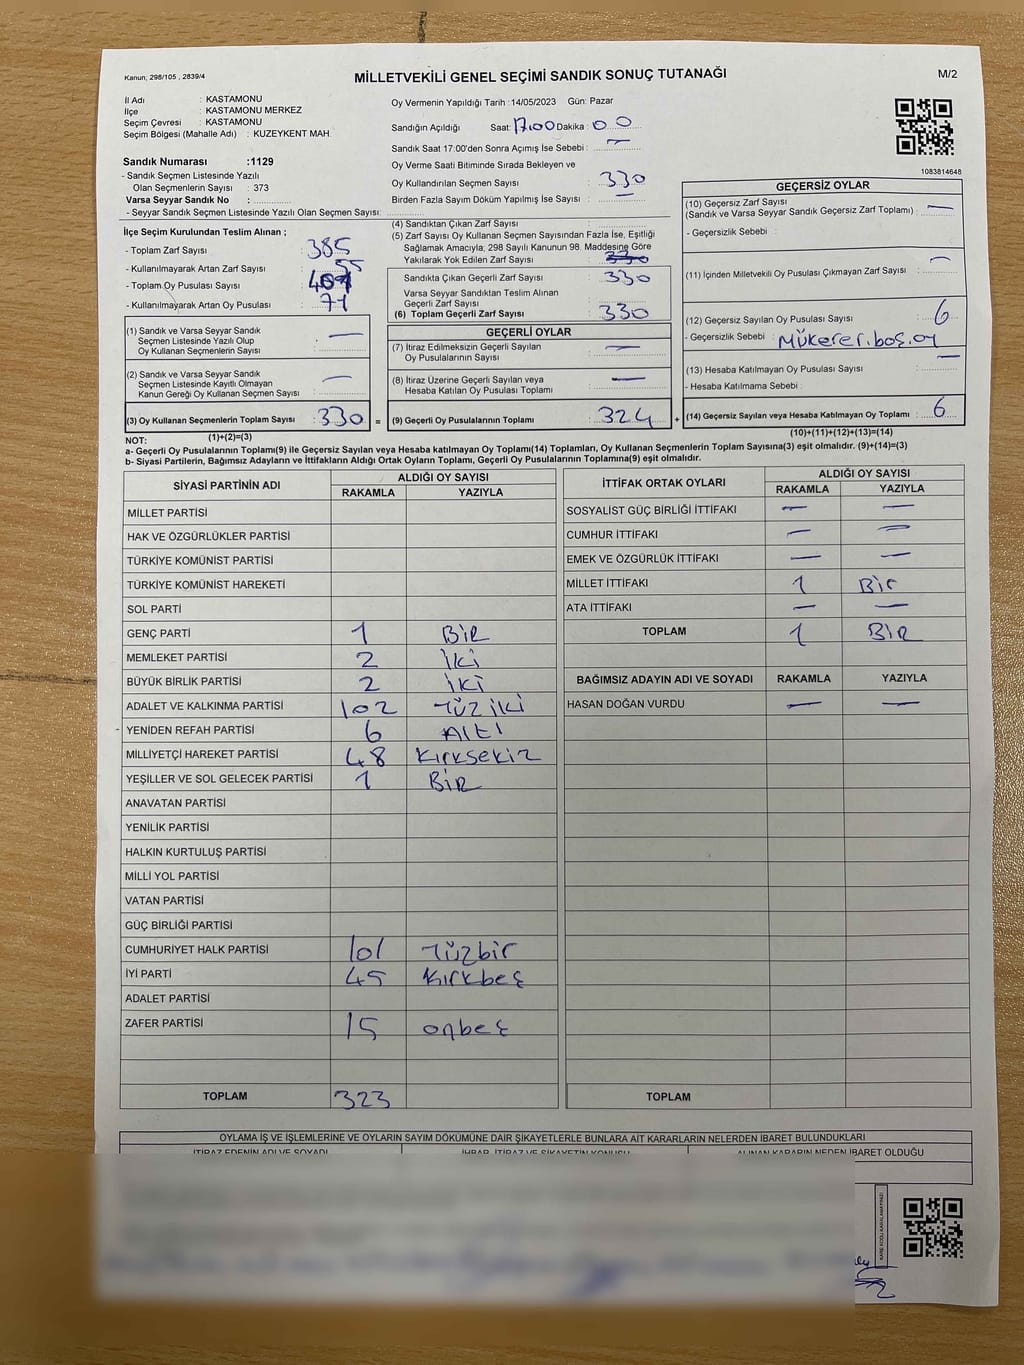 Kanun; 298/105 , 2839/4
MİLLETVEKİLİ GENEL SEÇİMİ SANDIK SONUÇ TUTANAĞI
M/2
İl Adı : KASTAMONU
İlçe : KASTAMONU MERKEZ
Seçim Çevresi : KASTAMONU
Seçim Bölgesi (Mahalle Adı) : KUZEYKENT MAH.
Sandık Numarası :1129
- Sandık Seçmen Listesinde Yazılı
Olan Seçmenlerin Sayısı : 373
Varsa Seyyar Sandık No :
- Seyyar Sandık Seçmen Listesinde Yazılı Olan Seçmen Sayısı:
Oy Vermenin Yapıldığı Tarih :14/05/2023 Gün: Pazar
Sandığın Açıldığı Saat: 17.00 Dakika : 00
Sandık Saat 17:00'den Sonra Açımış İse Sebebi : —
Oy Verme Saati Bitiminde Sırada Bekleyen ve
Oy Kullandırılan Seçmen Sayısı : 330
Birden Fazla Sayım Döküm Yapılmış İse Sayısı : —
1083814648
İlçe Seçim Kurulundan Teslim Alınan ;
- Toplam Zarf Sayısı : 385
- Kullanılmayarak Artan Zarf Sayısı : 55
- Toplam Oy Pusulası Sayısı
- Kullanılmayarak Artan Oy Pusulası : 71
(1) Sandık ve Varsa Seyyar Sandık
Seçmen Listesinde Yazılı Olup
Oy Kullanan Seçmenlerin Sayısı : —
(2) Sandık ve Varsa Seyyar Sandık
Seçmen Listesinde Kayıtlı Olmayan
Kanun Gereği Oy Kullanan Seçmen Sayısı : —
(3) Oy Kullanan Seçmenlerin Toplam Sayısı : 330 =
(1)+(2)=(3)
(4) Sandıktan Çıkan Zarf Sayısı :
(5) Zarf Sayısı Oy Kullanan Seçmen Sayısından Fazla İse, Eşitliği
Sağlamak Amacıyla; 298 Sayılı Kanunun 98. Maddesine Göre
Yakılarak Yok Edilen Zarf Sayısı : 330
Sandıkta Çıkan Geçerli Zarf Sayısı : 330
Varsa Seyyar Sandıktan Teslim Alınan
Geçerli Zarf Sayısı :
(6) Toplam Geçerli Zarf Sayısı : 330
GEÇERLİ OYLAR
(7) İtiraz Edilmeksizin Geçerli Sayılan
Oy Pusulalarının Sayısı : —
(8) İtiraz Üzerine Geçerli Sayılan veya
Hesaba Katılan Oy Pusulası Toplamı : —
(9) Geçerli Oy Pusulalarının Toplamı : 324 +
GEÇERSİZ OYLAR
(10) Geçersiz Zarf Sayısı
(Sandık ve Varsa Seyyar Sandık Geçersiz Zarf Toplamı) : —
- Geçersizlik Sebebi :
(11) İçinden Milletvekili Oy Pusulası Çıkmayan Zarf Sayısı : —
(12) Geçersiz Sayılan Oy Pusulası Sayısı : 6
- Geçersizlik Sebebi : Mükerer.boş.oy
(13) Hesaba Katılmayan Oy Pusulası Sayısı : —
- Hesaba Katılmama Sebebi :
(14) Geçersiz Sayılan veya Hesaba Katılmayan Oy Toplamı : 6
(10)+(11)+(12)+(13)=(14)
NOT:
a- Geçerli Oy Pusulalarının Toplamı(9) ile Geçersiz Sayılan veya Hesaba katılmayan Oy Toplamı(14) Toplamları, Oy Kullanan Seçmenlerin Toplam Sayısına(3) eşit olmalıdır. (9)+(14)=(3)
b- Siyasi Partilerin, Bağımsız Adayların ve İttifakların Aldığı Ortak Oyların Toplamı, Geçerli Oy Pusulalarının Toplamına(9) eşit olmalıdır.
SİYASİ PARTİNİN ADI
ALDIĞI OY SAYISI
RAKAMLA YAZIYLA
MİLLET PARTİSİ
HAK VE ÖZGÜRLÜKLER PARTİSİ
TÜRKİYE KOMÜNİST PARTİSİ
TÜRKİYE KOMÜNİST HAREKETİ
SOL PARTİ
GENÇ PARTİ 1 BİR
MEMLEKET PARTİSİ 2 İki
BÜYÜK BİRLİK PARTİSİ 2 İKİ
ADALET VE KALKINMA PARTİSİ 102 Yüz iki
YENİDEN REFAH PARTİSİ 6 Altı
MİLLİYETÇİ HAREKET PARTİSİ 48 Kırksekiz
YEŞİLLER VE SOL GELECEK PARTİSİ 1 BİR
ANAVATAN PARTİSİ
YENİLİK PARTİSİ
HALKIN KURTULUŞ PARTİSİ
MİLLİ YOL PARTİSİ
VATAN PARTİSİ
GÜÇ BİRLİĞİ PARTİSİ
CUMHURİYET HALK PARTİSİ 101 Yüzbir
İYİ PARTİ 45 Kırkbeş
ADALET PARTİSİ
ZAFER PARTİSİ 15 onbeş
TOPLAM 323
İTTİFAK ORTAK OYLARI
ALDIĞI OY SAYISI
RAKAMLA YAZIYLA
SOSYALİST GÜÇ BİRLİĞİ İTTİFAKI — —
CUMHUR İTTİFAKI — —
EMEK VE ÖZGÜRLÜK İTTİFAKI — —
MİLLET İTTİFAKI 1 Bir
ATA İTTİFAKI — —
TOPLAM 1 BİR
BAĞIMSIZ ADAYIN ADI VE SOYADI RAKAMLA YAZIYLA
HASAN DOĞAN VURDU — —
TOPLAM
OYLAMA İŞ VE İŞLEMLERİNE VE OYLARIN SAYIM DÖKÜMÜNE DAİR ŞİKAYETLERLE BUNLARA AİT KARARLARIN NELERDEN İBARET BULUNDUKLARI
İTİRAZ EDENİN ADI VE SOYADI İHBAR, İTİRAZ VE ŞİKAYETİN KONUSU ALINAN KARARIN NEDEN İBARET OLDUĞU